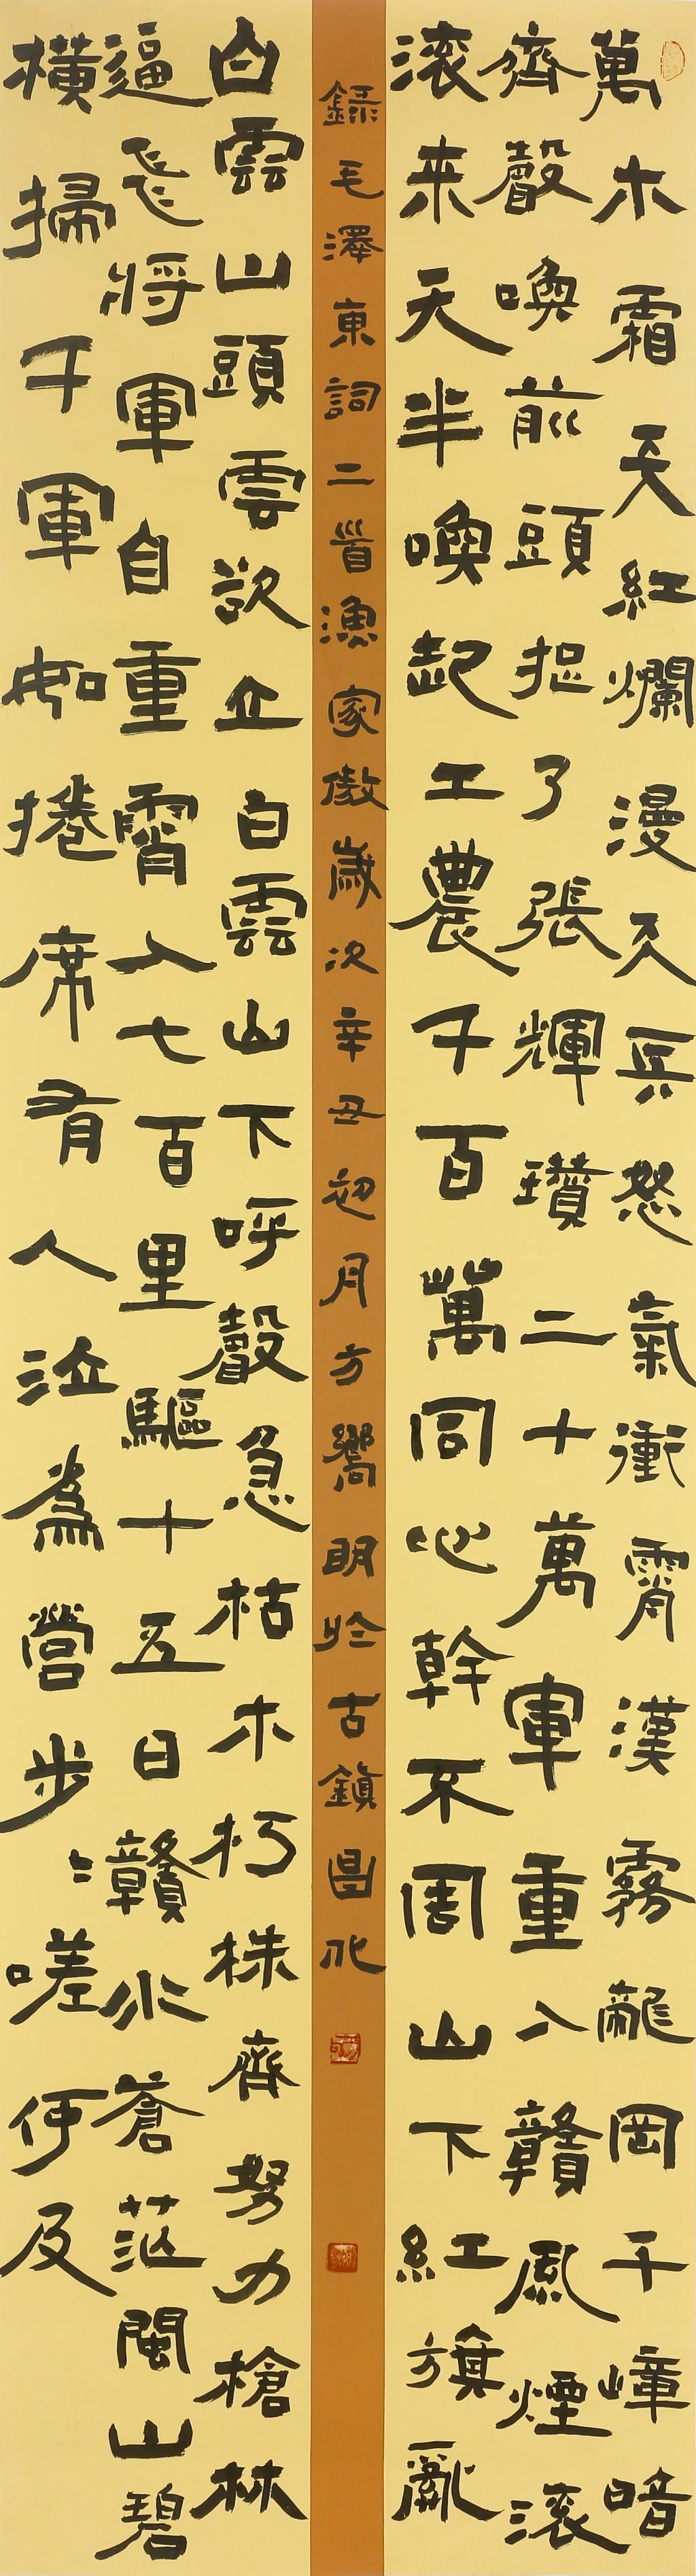 萬木霜天紅爛漫天兵怒氣衝霄漢霧龍岡千嶂暗
齊聲喚前頭捉了張輝瓚二十萬軍重入贛風煙滚
滚来天半喚起工農千百萬同心幹不周山下紅旗亂
錄毛澤東詞二首漁家傲歲次辛丑初月方嚮明於古鎮昌化
白雲山頭雲欲立白雲山下呼聲急枯木朽株齊努力槍林
逼飛將軍自重霄入七百里驅十五日贛水蒼茫閩山碧
橫掃千軍如捲席有人泣為營步々嗟何及